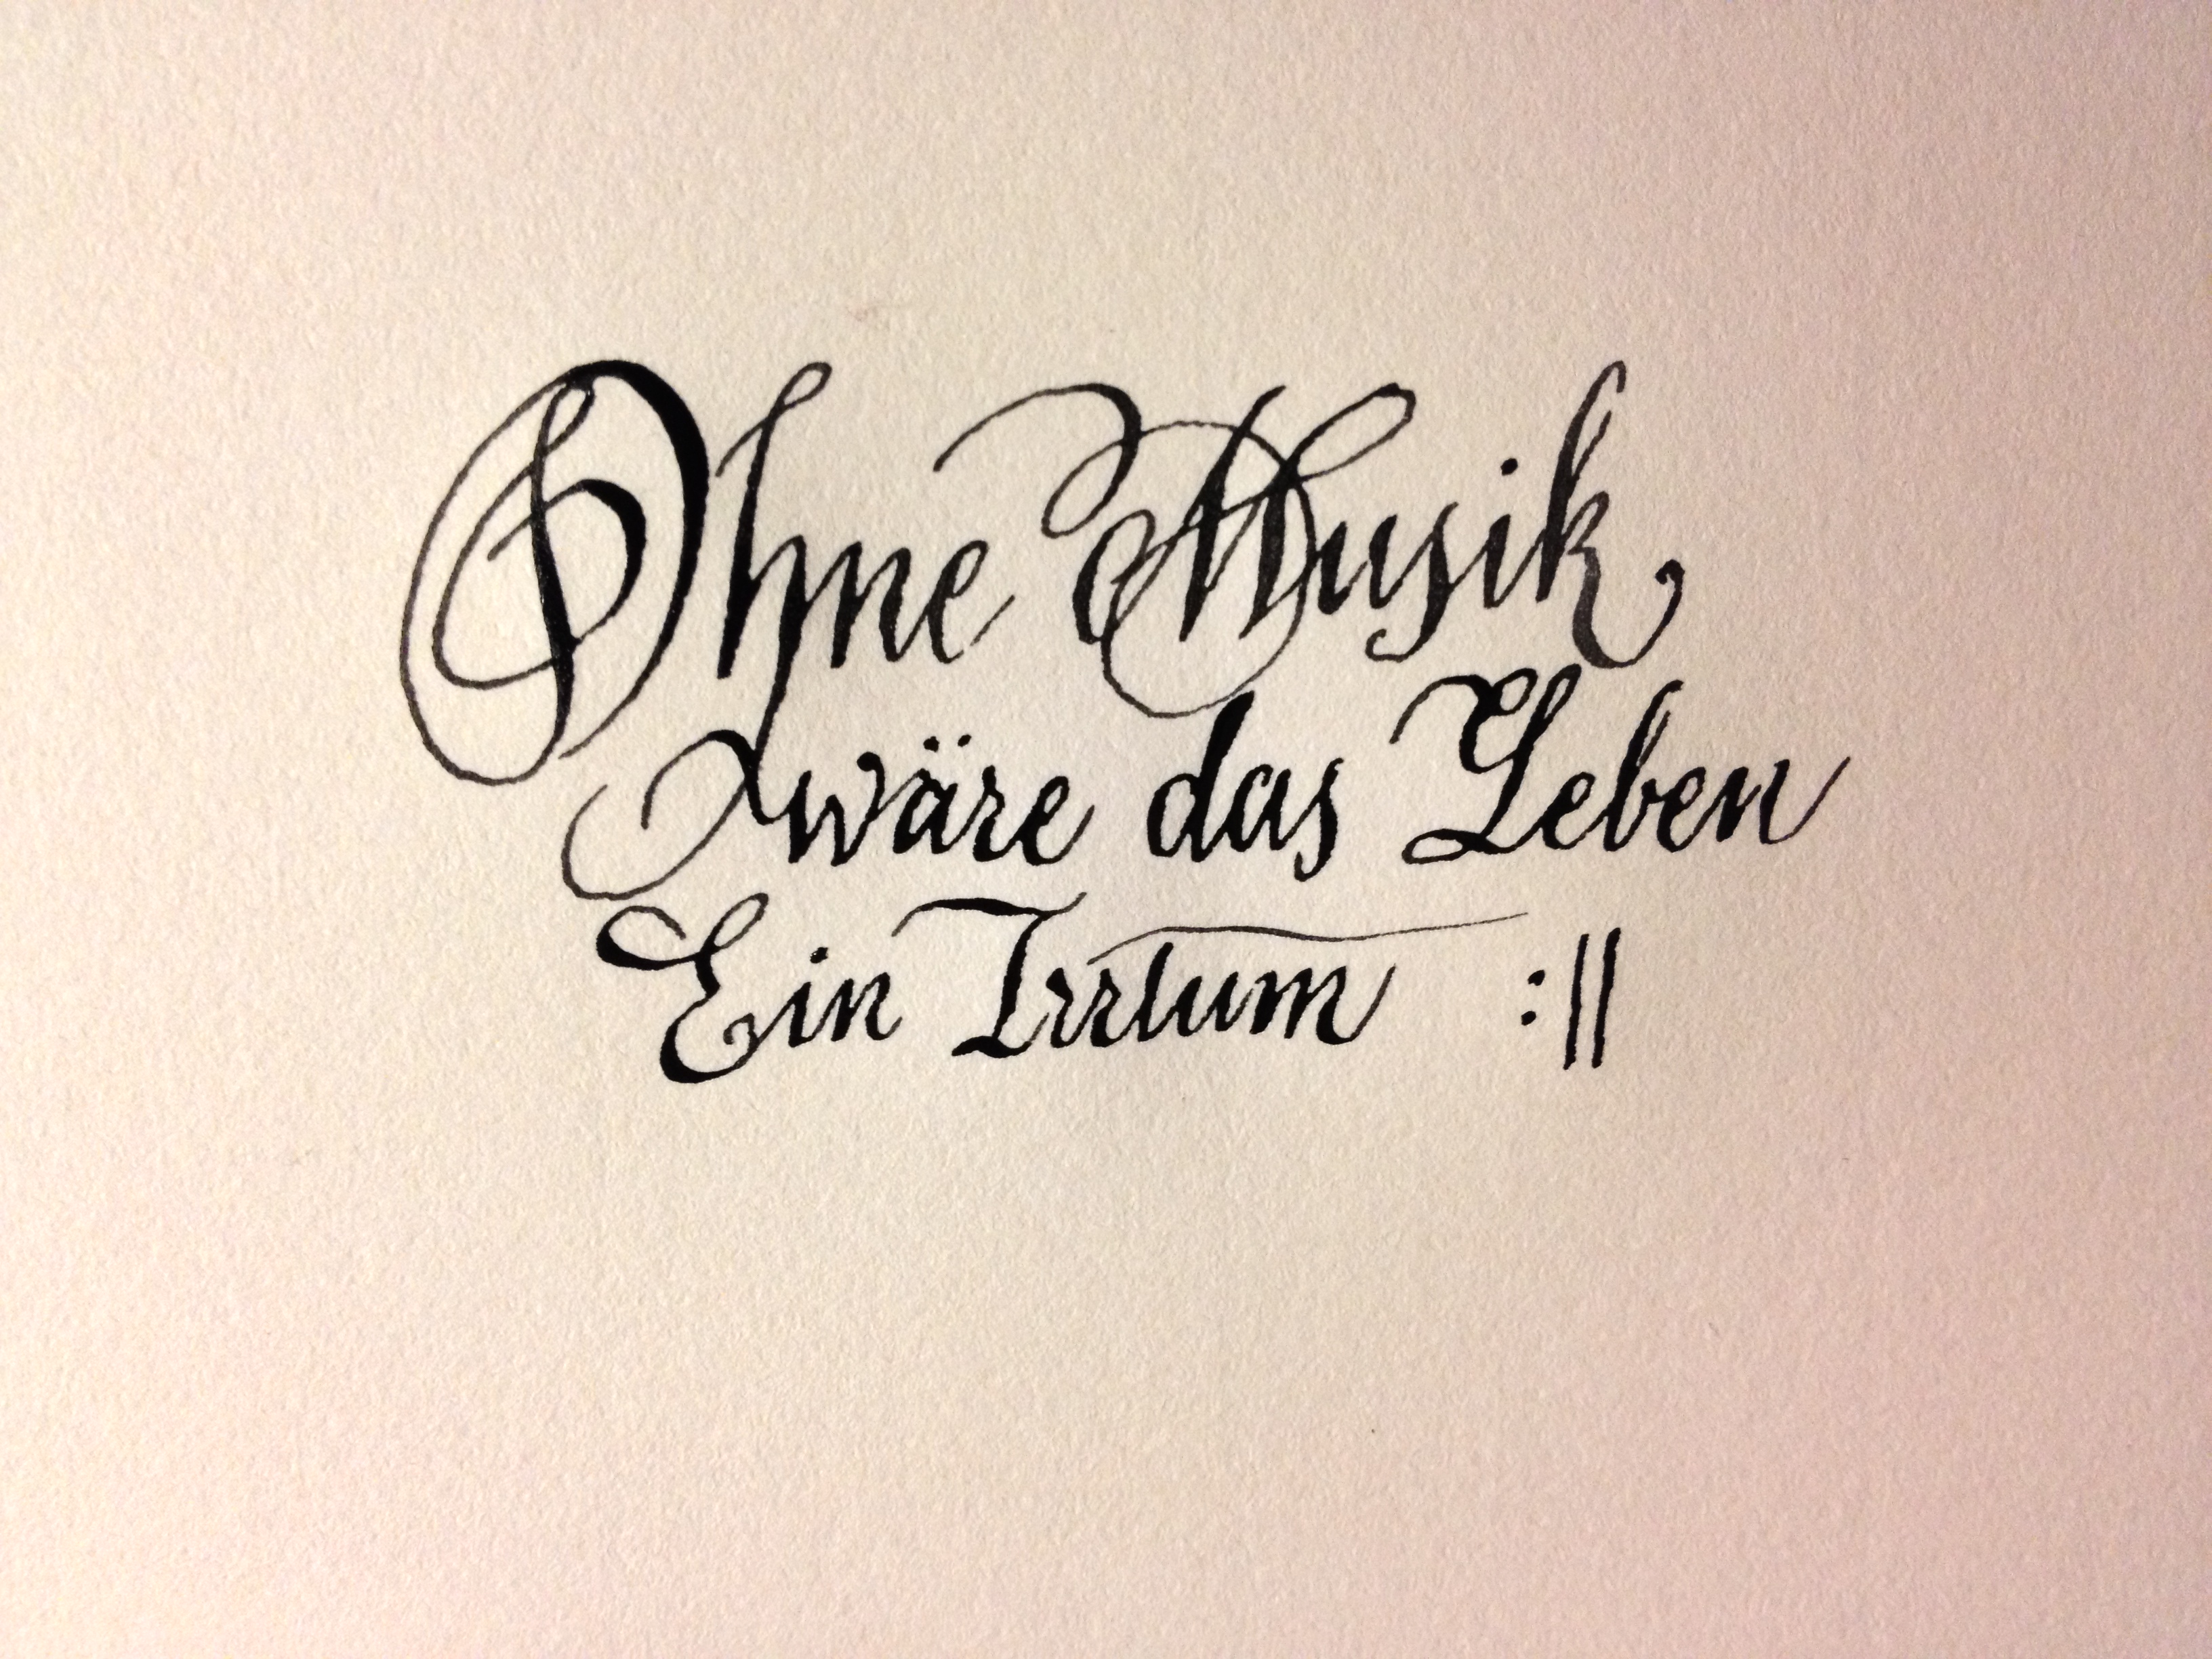 Ohne Musik
wäre das Leben
Ein Irrtum :||